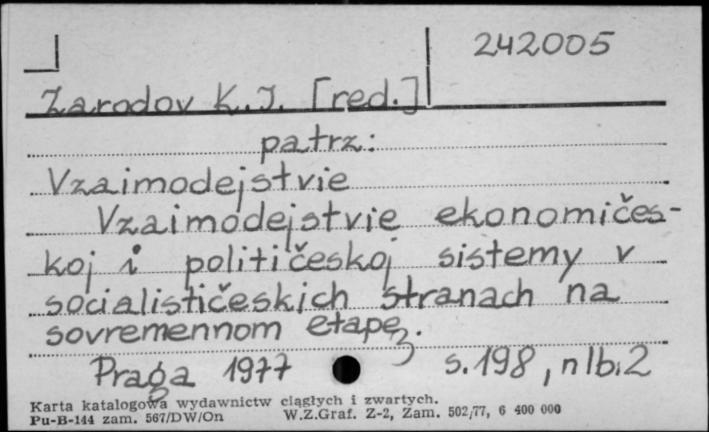 242005
Zarodov K.I. [red.]
patrz:
Vzaimodejstvie
Vzaimodejstvie ekonomičes-
koj i politićeskoj sistemy v
socialističeskich stranach na
sovremennom etape.
Praga 1977 s.198, nlb.2
Karta katalogowa wydawnictw ciągłych i zwartych.
Pu-B-144 zam. 567/DW/On W.Z.Graf. Z-2, Zam. 502/77, 6 400 000